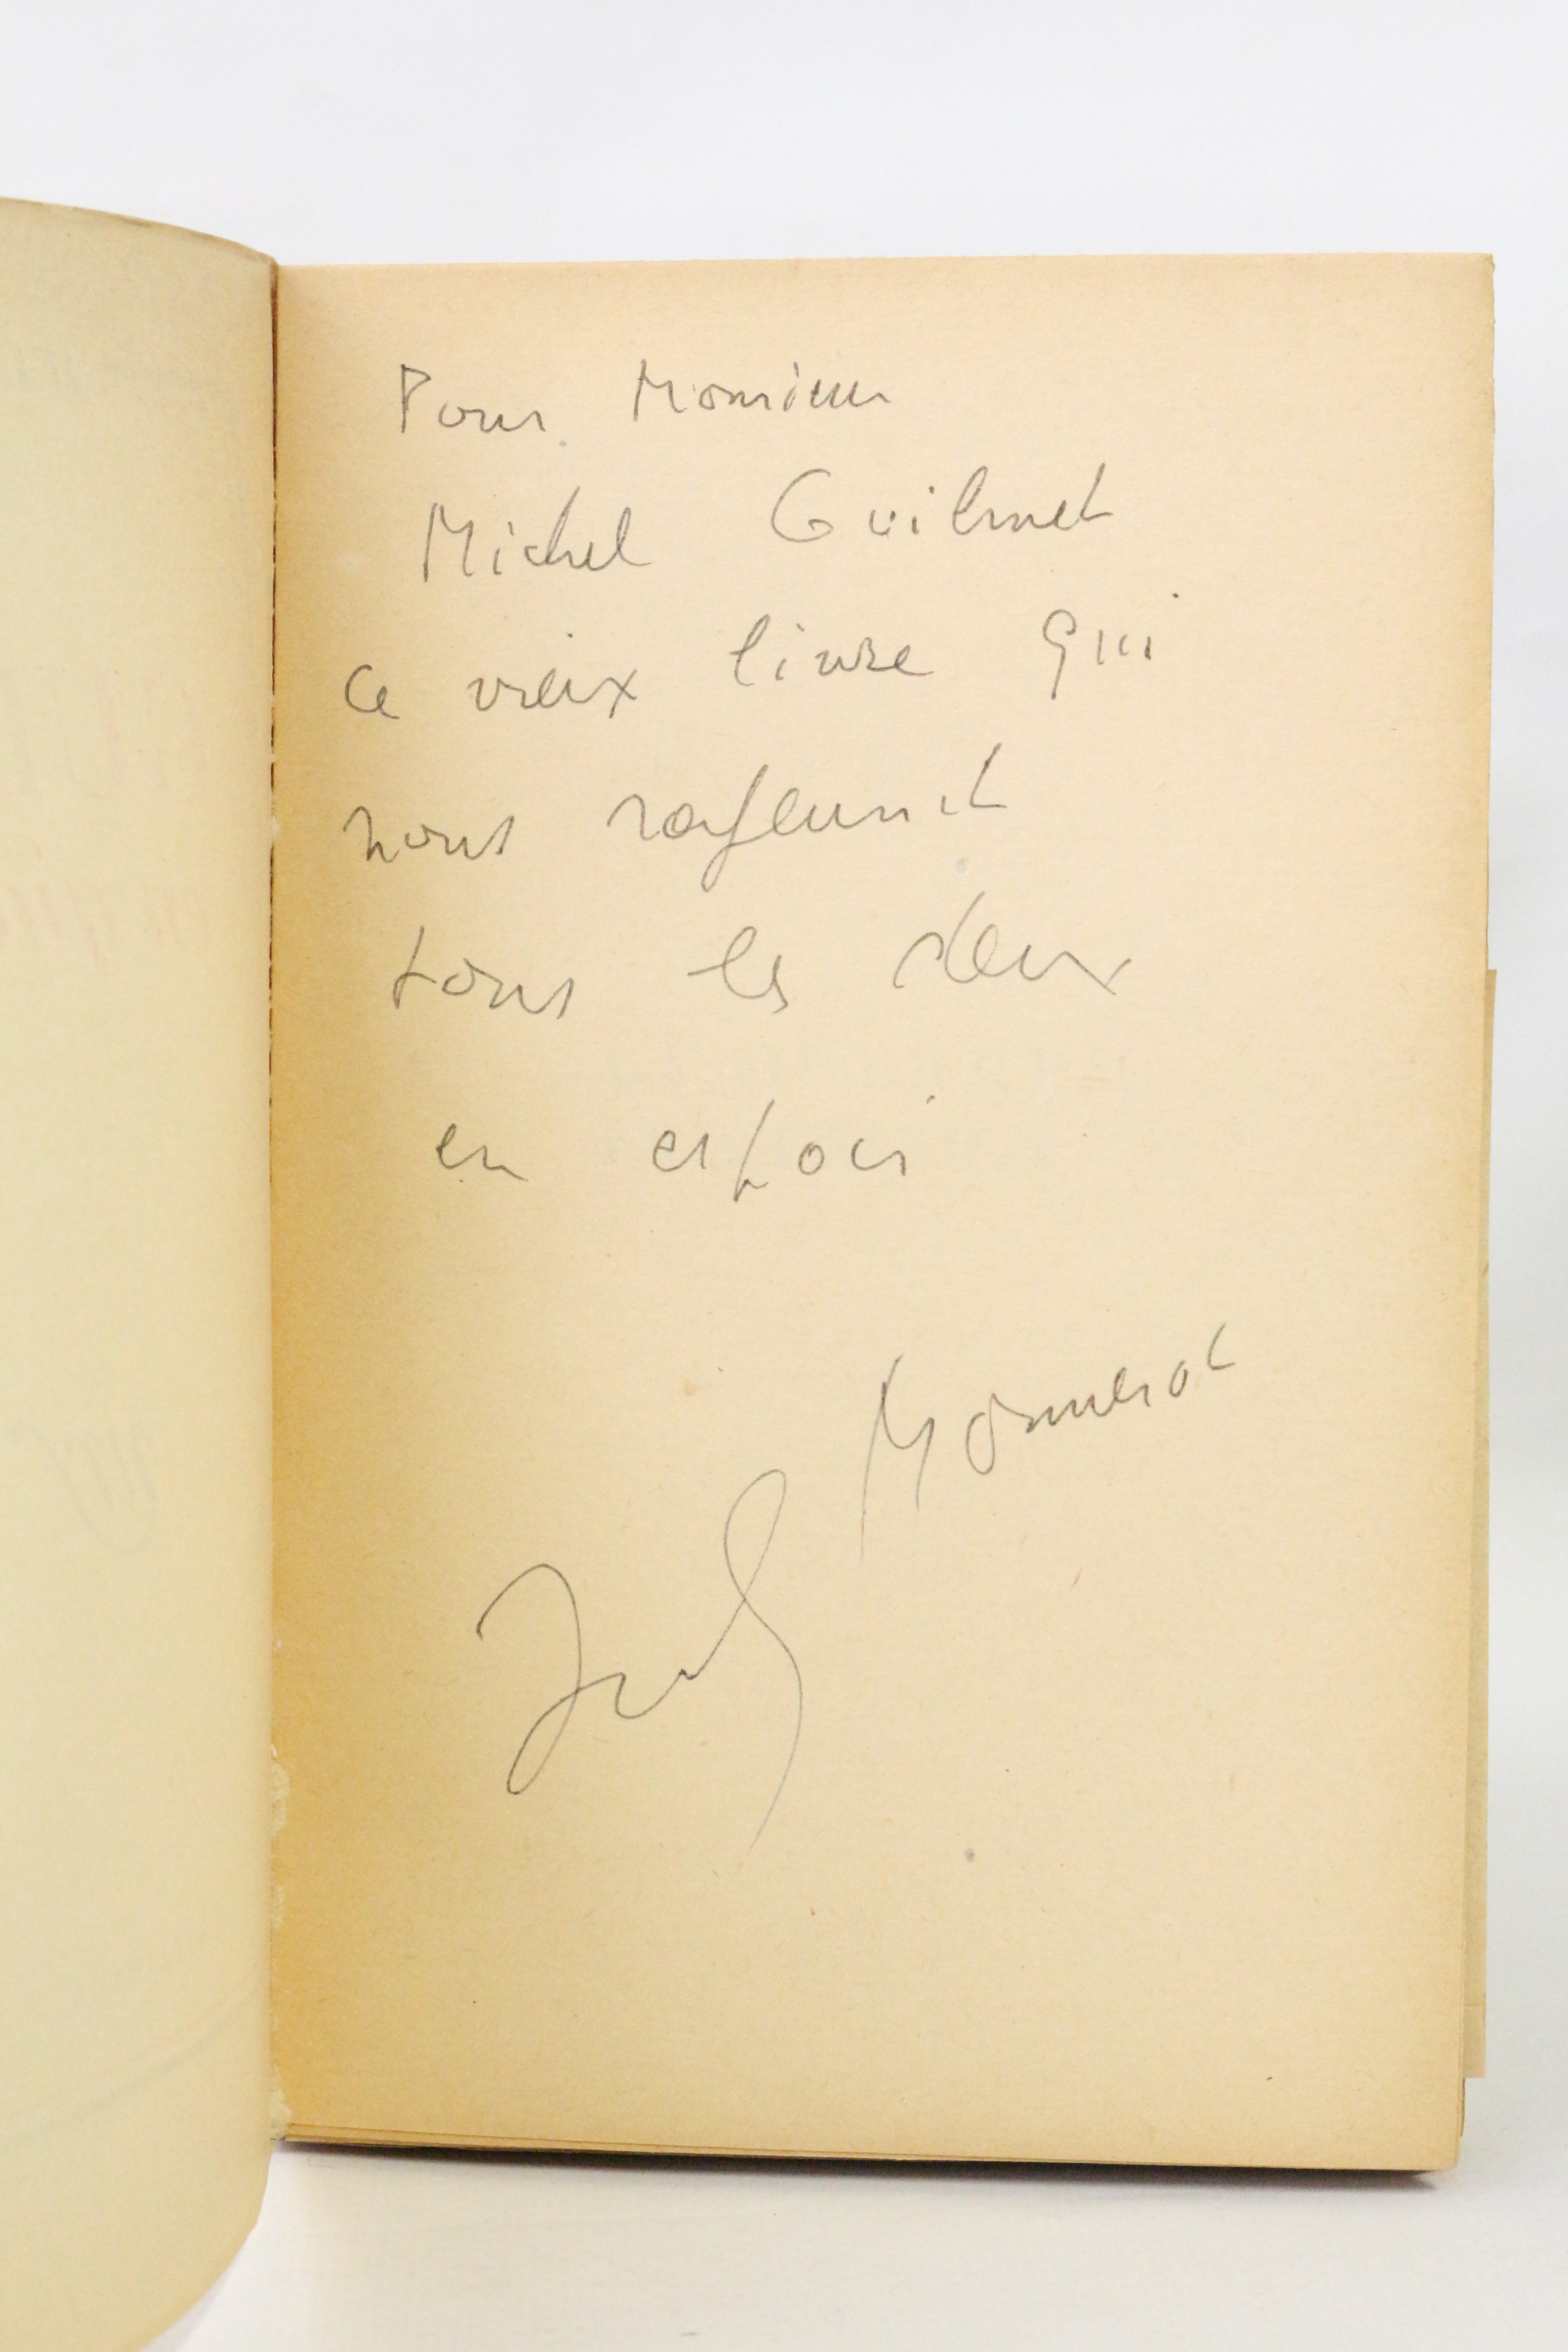 Pour Monsieur
Michel Guilmet
ce vieux livre qui
nous rajeunit
tous les deux
en espoir
Monnerot
Jules